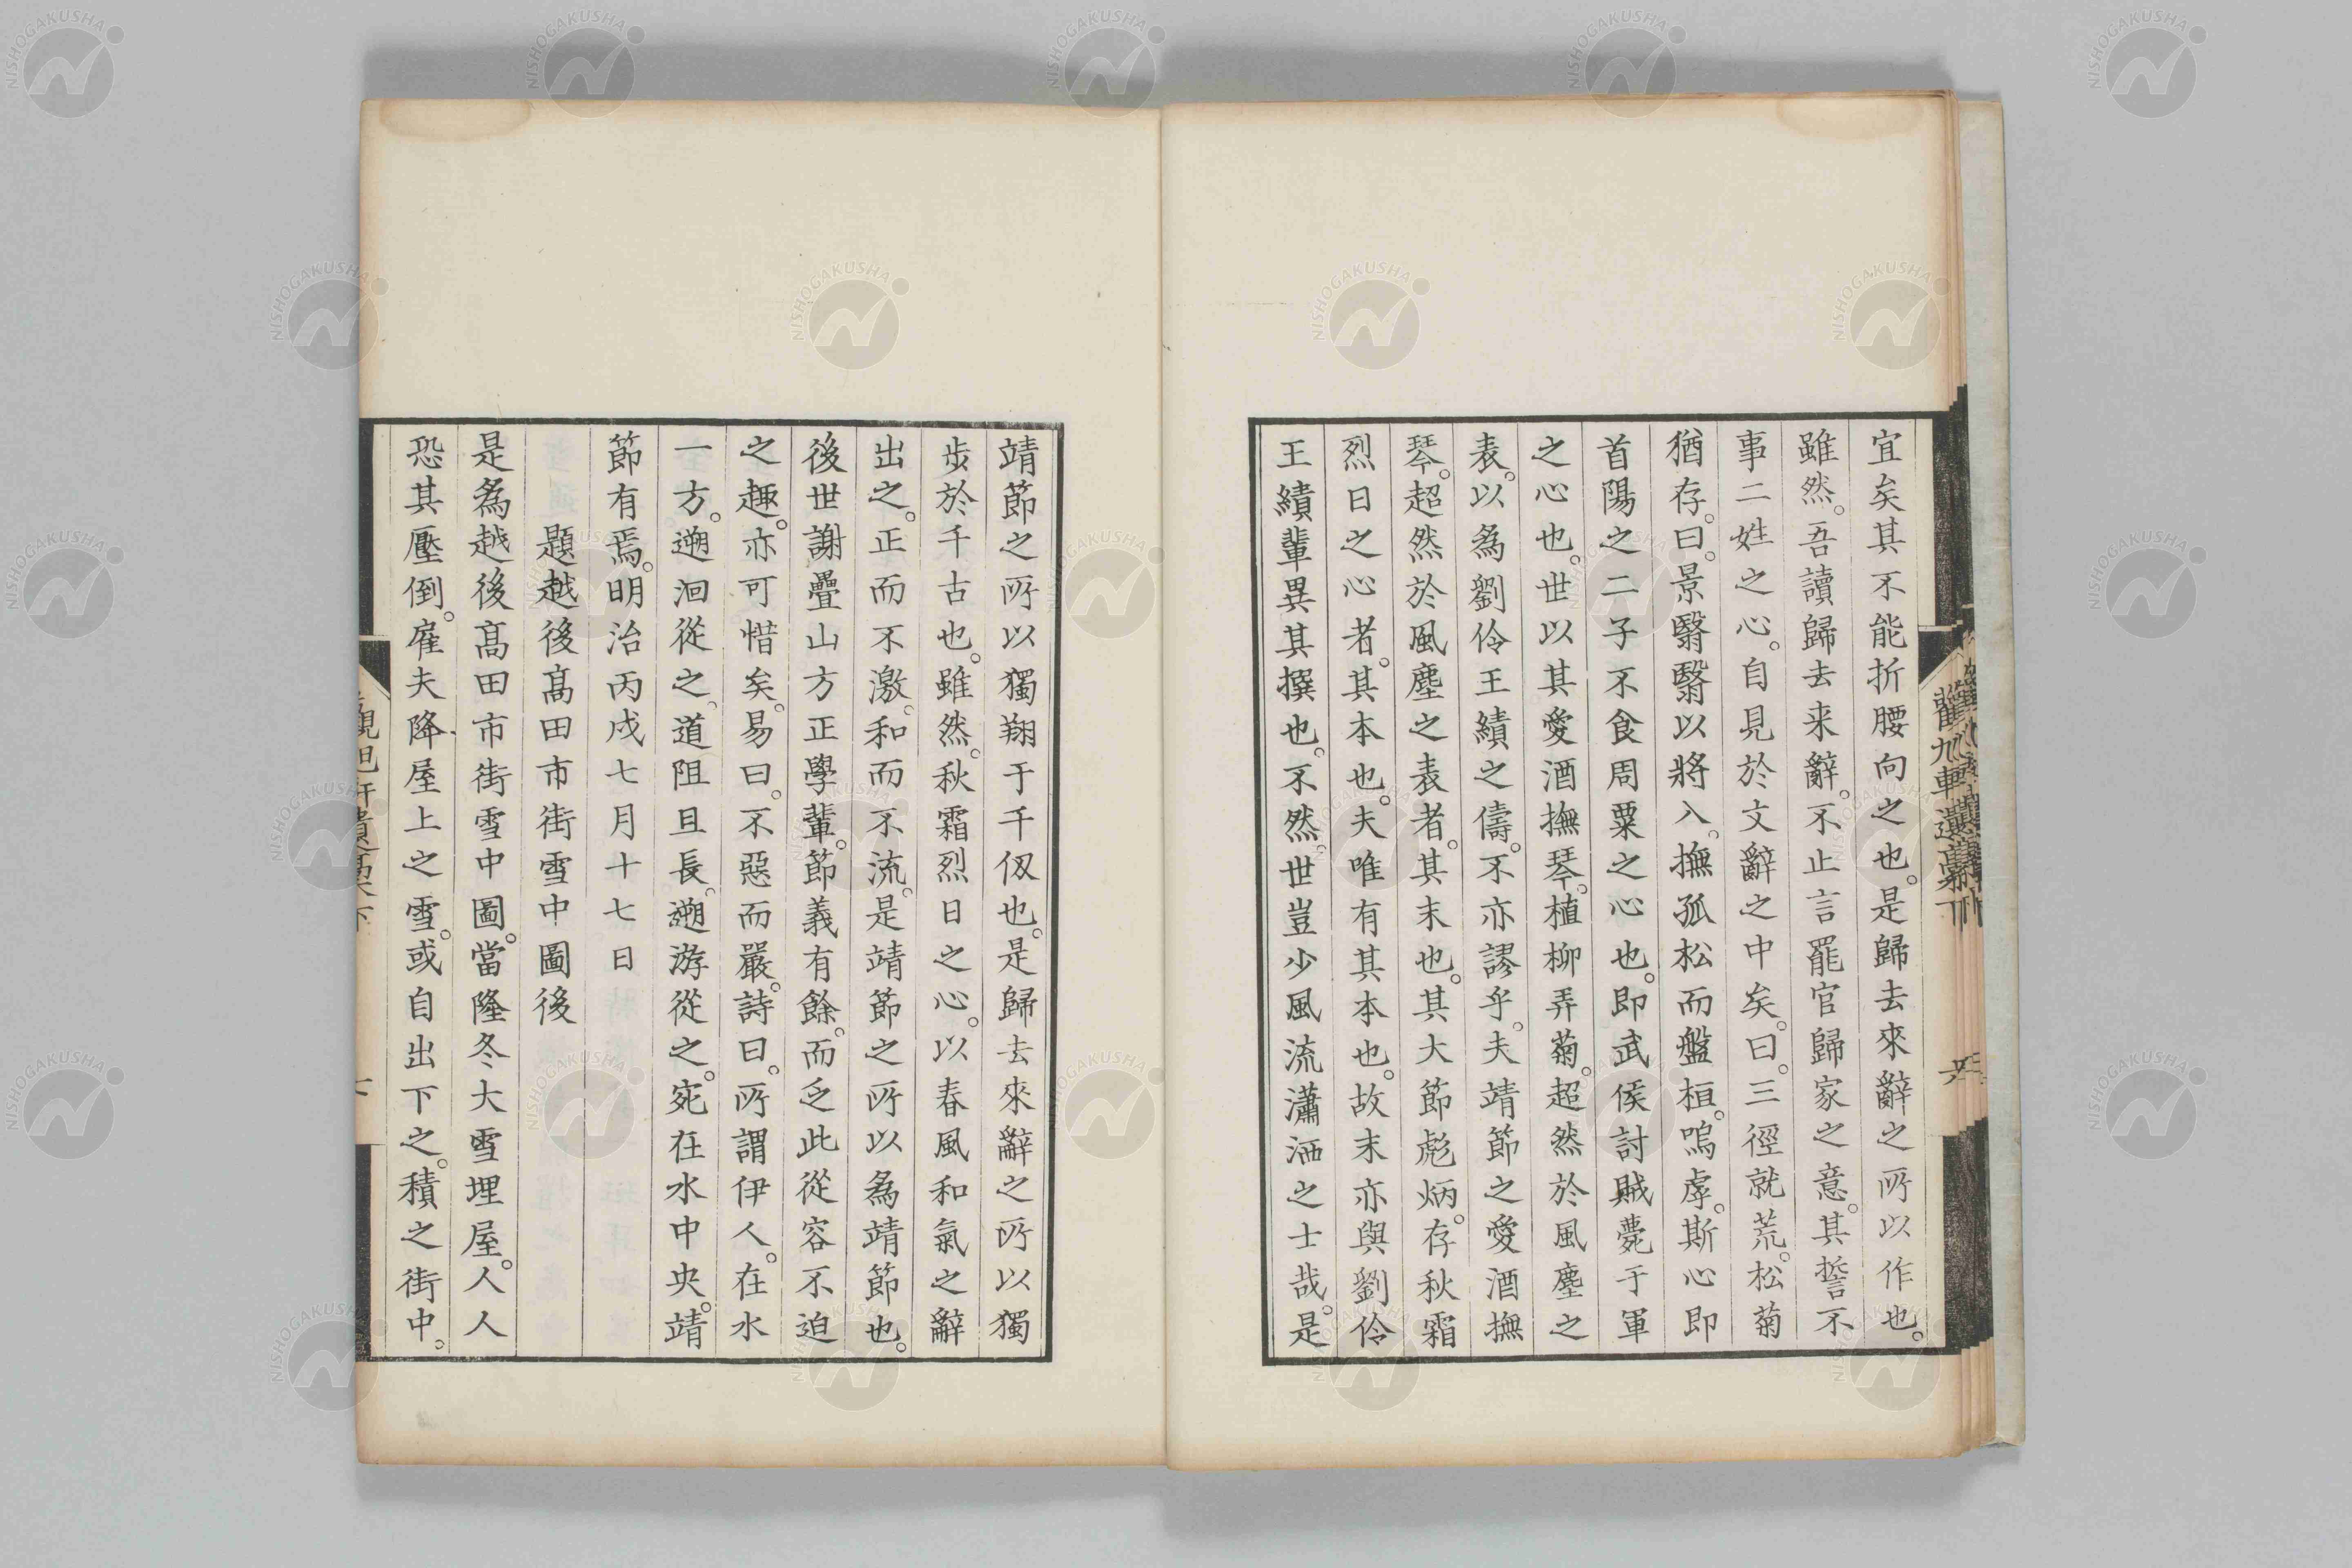 宜矣其不能折腰向之也。是歸去來辭之所以作也。
雖然。吾讀歸去来辭。不止言罷官歸家之意。其誓不
事二姓之心。自見於文辭之中矣。曰。三徑就荒。松菊
猶存。曰。景翳翳以將入。撫孤松而盤桓。嗚虖。斯心即
首陽之二子不食周粟之心也。即武侯討賊薨于軍
之心也。世以其愛酒撫琴。植柳弄菊。超然於風塵之
表。以為劉伶王績之儔。不亦謬乎。夫靖節之愛酒撫
琴。超然於風塵之表者。其末也。其大節彪炳。存秋霜
烈日之心者。其本也。夫唯有其本也。故末亦與劉伶
王績輩異其撰也。不然。世豈少風流瀟洒之士哉。是
靖節之所以獨翔于千仭也。是歸去來辭之所以獨
步於千古也。雖然。秋霜烈日之心。以春風和氣之辭
出之。正而不激。和而不流。是靖節之所以為靖節也。
後世謝疊山方正學輩。節義有餘。而乏此從容不迫
之趣。亦可惜矣。易曰。不惡而嚴。詩曰。所謂伊人。在水
一方。遡洄從之。道阻且長。遡游從之。宛在水中央。靖
節有焉。明治丙戌七月十七日
題越後髙田市街雪中圖後
是為越後髙田市街雪中圖。當隆冬大雪埋屋。人人
恐其壓倒。雇夫降屋上之雪。或自出下之。積之街中。
NISHOGAKUSHA